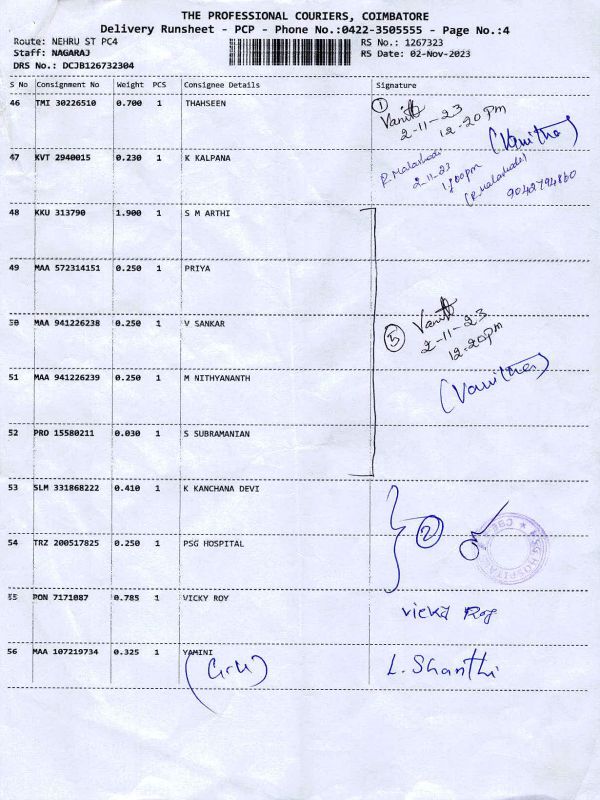 THE PROFESSIONAL COURIERS, COIMBATORE
Delivery Runsheet - PCP - Phone No.:0422-3505555 - Page No.:4
Route: NEHRU ST PC4 RS No.: 1267323
Staff: NAGARAJ RS Date: 02-Nov-2023
DRS No.: DCJB126732304
S No Consignment No Weight PCS Consignee Details Signature
46 TMI 30226510 0.700 1 THAHSEEN
1 Vanith
2-11-23 12-20pm
(Vanitha)
47 KVT 2940015 0.230 1 K KALPANA
2.11.23
9042794860
48 KKU 313790 1.900 1 S M ARTHI
49 MAA 572314151 0.250 1 PRIYA
50 MAA 941226238 0.250 1 V SANKAR
5 Vanith
2-11-23
12.20pm
51 MAA 941226239 0.250 1 M NITHYANANTH
(Vanitha)
52 PRO 15580211 0.030 1 S SUBRAMANIAN
53 SLM 331868222 0.410 1 K KANCHANA DEVI
2
PSG HOSPITAL
54 TRZ 200517825 0.250 1 PSG HOSPITAL
55 PON 7171087 0.785 1 VICKY ROY
Vicky Roy
56 MAA 107219734 0.325 1 YAMINI
L. Shanthi